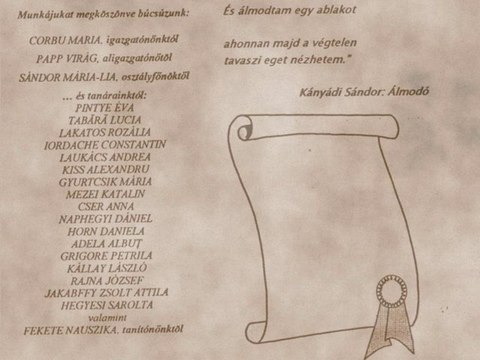 Munkájukat megköszönve búcsúzunk:
CORBU MARIA, igazgatónőnktől
PAPP VIRÁG, aligazgatónőtől
SÁNDOR MÁRIA-LIA, osztályfőnöktől
... és tanárainktól:
PINTYE ÉVA
TABĂRĂ LUCIA
LAKATOS ROZÁLIA
IORDACHE CONSTANTIN
LAUKÁCS ANDREA
KISS ALEXANDRU
GYURTCSIK MÁRIA
MEZEI KATALIN
CSER ANNA
NAPHEGYI DÁNIEL
HORN DANIELA
ADELA ALBUȚ
GRIGORE PETRILA
KÁLLAY LÁSZLÓ
RAJNA JÓZSEF
JAKABFFY ZSOLT ATTILA
HEGYESI SAROLTA
valamint
FEKETE NAUSZIKA, tanítónőnktől
És álmodtam egy ablakot
ahonnan majd a végtelen
tavaszi eget nézhetem."
Kányádi Sándor: Álmodó